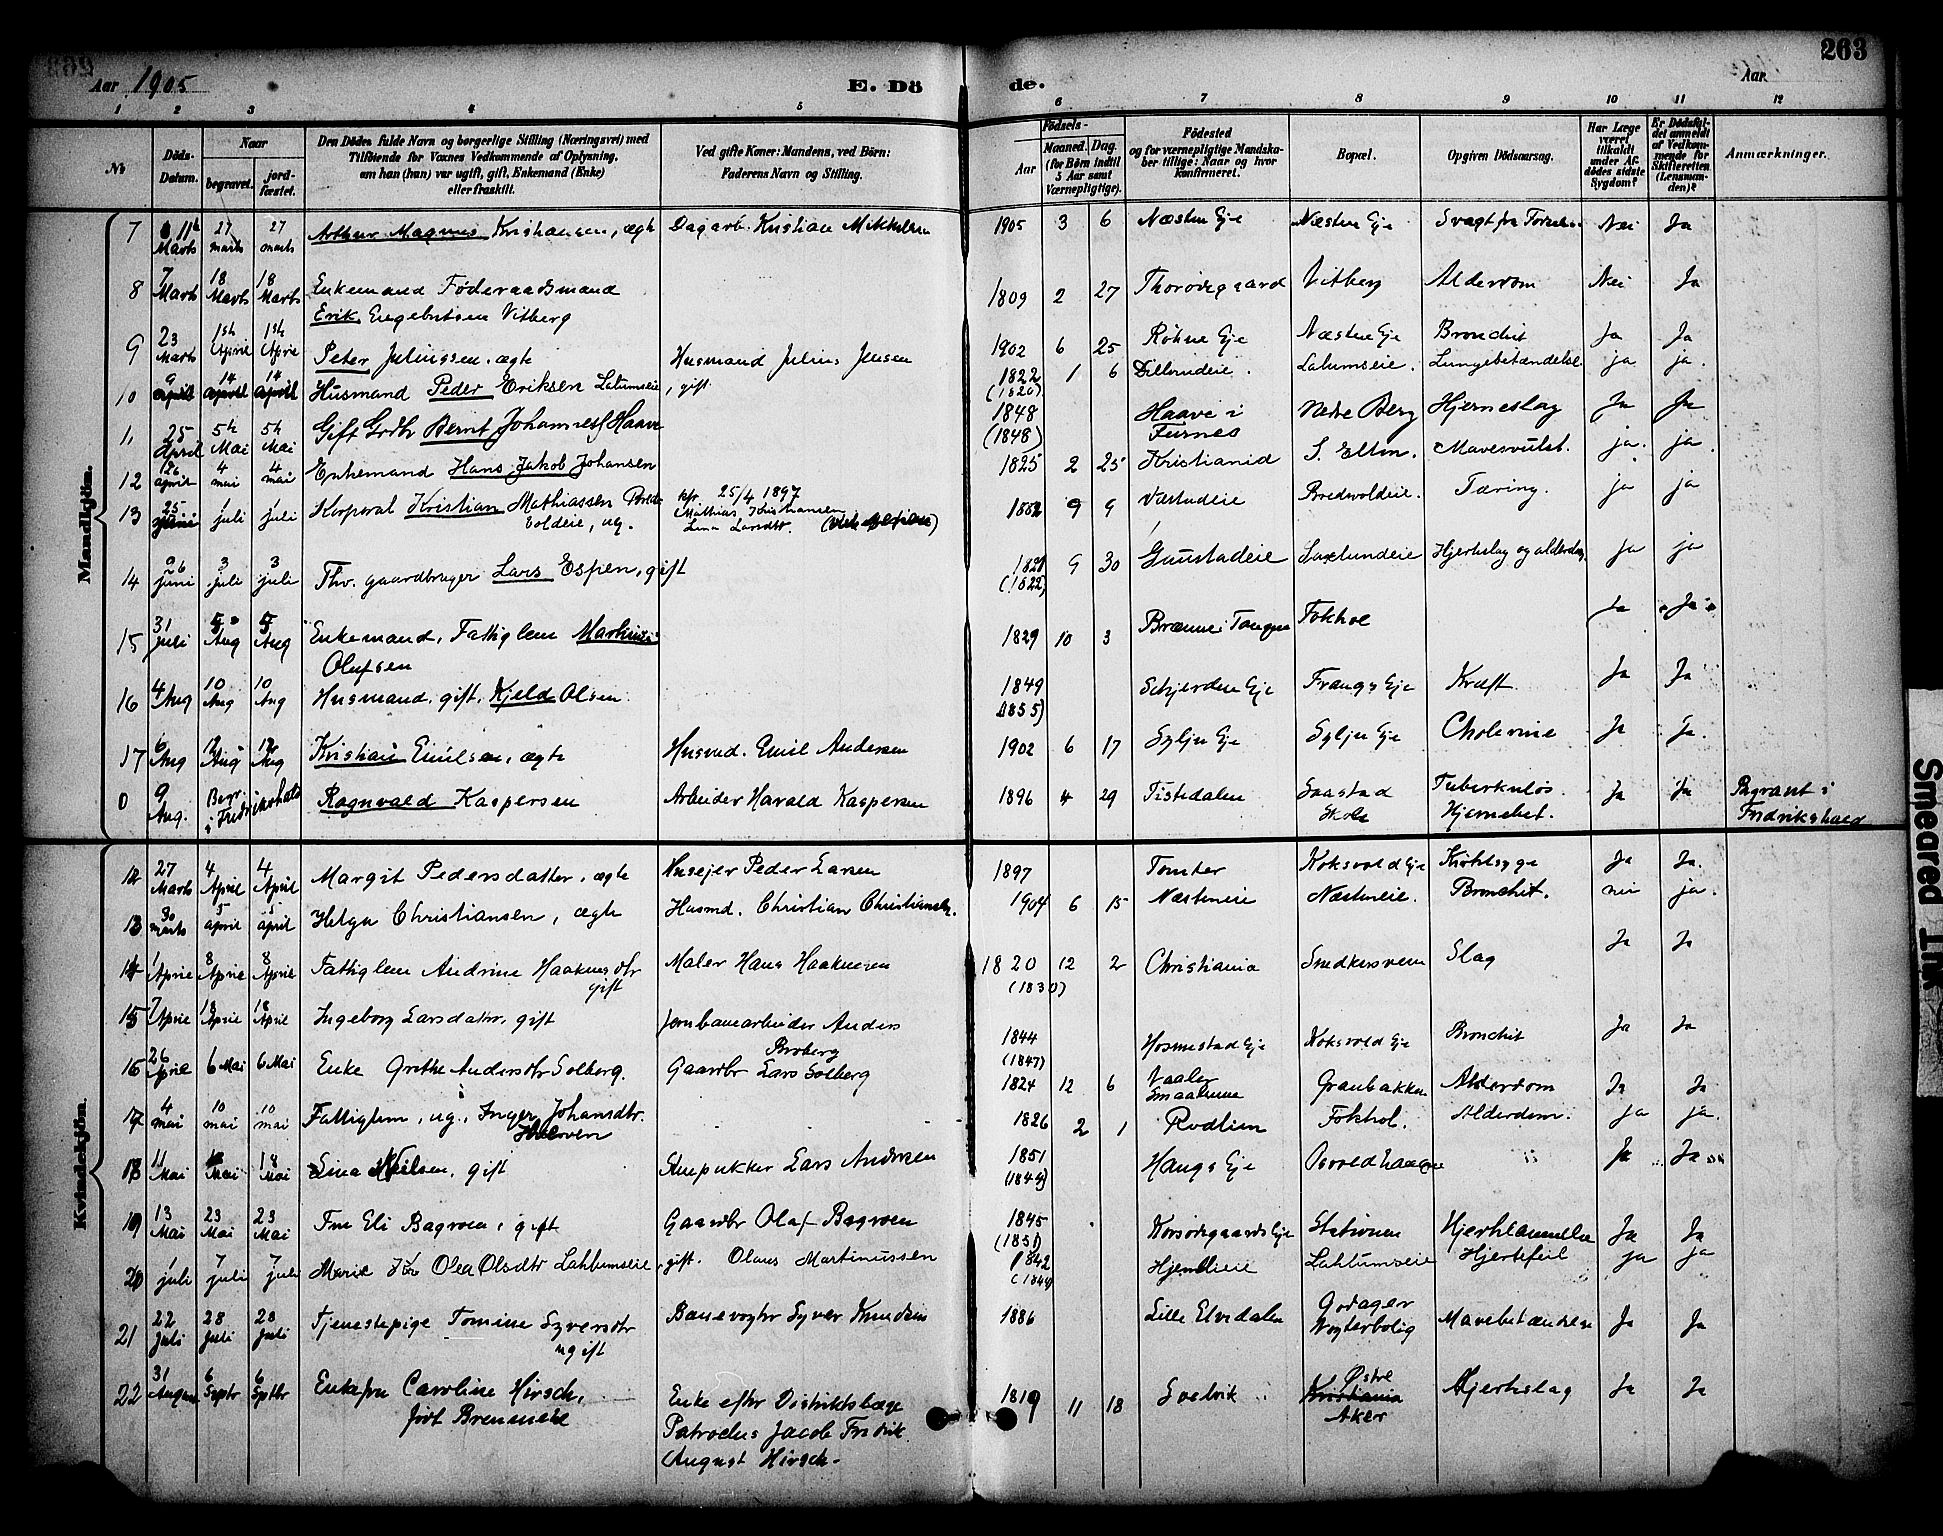 263
Aar 1905
E. Dö
de.
Aar
1 2 3 4 5 6 7 8 9 10 11 12
No
Döds-Datum.
Naar
begravet.
jord-fæstet.
Den Dödes fulde Navn og borgerlige Stilling (Næringsvei) med
Tilföiende for Voxnes Vedkommende af Oplysning,
om han (hun) var ugift, gift, Enkemand (Enke)
eller fraskilt.
Ved gifte Koner: Mandens, ved Börn:
Faderens Navn og Stilling.
Födsels-
Aar
Maaned. Dag.
(for Börn indtil
5 Aar samt
Værnepligtige).
Födested
og for værnepligtige Mandska-
ber tillige: Naar og hvor
konfirmeret.
Bopæl.
Opgiven Dödsaarsag.
Har Læge
været
tilkaldt
under Af-
dödes sidste
Sygdom?
Er Dödsfal-
det anmeldt
af Vedkom-
mende for
Skifteretten
(Lensman-
den)?
Anmærkninger.
Mandkjön.
7 11te Marts 27 marts 27 marts Arthur Magnus Kristiansen, ægte Dagarb. Kristian Mikkelsen 1905 3 6 Næsten Eje Næsten Eje Svagt fra Nei Ja
8 7 Marts 18 Marts 18 Marts Enkemand Föderaadsmand
Erik Engebretsen Vitberg 1809 2 27 Thorödegaard Vitberg Alderdom Nei Ja
9 23 Marts 1ste April 1ste April Peter Juliussen, ægte Husmand Julius Jensen 1902 6 25 Röhne Eje Næsten Eje Bronchit Ja Ja
10 9 april 14 april 14 april Husmand Peder Eriksen Lalumseie, gift 1822 (1820) 1 6 Dillerudeie. Lalumseie. Lungebetændelse ja ja.
11 25 April 5te Mai 5te Mai Gift Grdbr Bernt Johannes Haave 1848 (1848) Haave i Furnes Nedre Berg Hjerneslag Ja Ja
12 26 april 4 mai 4 mai Enkemand Hans Jakob Johansen 1825 2 25 Kristiania S. Elton. Mavesvulst. ja. ja.
13 25 juni 1 juli 1 juli Korporal Kristian Mathiassen
voldeie, ug. kfr. 25/4 1897
Mathias Kristiansen
Lina Larsdtr. 1882 9 9 Væstadeie Bredvoldeie. Tæring. ja ja
14 26 juni 3 juli 3 juli Thv. gaardbruger Lars Espien, gift 1821 (1822) 9 30 Gaustadeie Saxlundeie Hjerteslag og alderdom. ja ja
15 31 juli 5 Aug 5 Aug Enkemand, Fattiglem Martinus
Olufsen 1829 10 3 Brænne i Tangen Fokhol Ja Ja
16 4 Aug 10 Aug 10 Aug Husmand, gift, Kjeld Olsen 1849 (1855) Schjerden Eje Frangs Eje Kræft Ja Ja
17 6 Aug 12 Aug 12 Aug Kristian Emilsen, ægte Husmd. Emil Andersen 1902 6 17 Sylju Eje Sylju Eje Cholerine Ja Ja.
0 9 Aug. Begr. i Fredrikshald Ragnvald Kaspersen Arbeider Harald Kaspersen 1896 4 29 Tistedalen Saastad
Skole Tuberkulös
Hjernebet. Ja Ja Begravet i
Fredrikshald
Kvindekjön.
12 27 Marts 4 April 4 April Margit Pedersdatter, ægte Husejer Peder Larsen 1897 Tomter Koksvold Eje Kirtelsyge Ja Ja.
13 30 marts 5 april 5 april Helga Christiansen, ægte Husmd. Christian Christiansen. 1904 6 15 Næsteneie Næsteneie. Bronchit. nei ja.
14 1 April 8 April 8 April Fattiglem Andrine Haakensdtr
gift Maler Hans Haakensen 1820 (1830) 12 2 Christiania Snedkersveen Slag Ja Ja
15 7 April 18 April 18 April Ingeborg Larsdatter, gift Jernbanearbeider Anders
Broberg 1844 (1847) Hosmestad Eje Koksvold Eje Bronchit Ja Ja
16 26 April 6 Mai 6 Mai Enke Grethe Andersdtr Solberg. Gaardbr Lars Solberg 1824 12 6 Vaaler
Smaalenene Granbakken Alderdom Ja Ja
17 4 mai 10 mai 10 mai Fattiglem, ug., Inger Johansdtr. 1826 2 1 Rudlien Fokhol. Alderdom. ja ja.
18 11 Mai 18 Mai 18 Mai Lina Nilsen, gift Stenpukker Lars Andersen 1851 (1849) Haugs Eje " Ja Ja
19 13 Mai 23 Mai 23 Mai Fru Eli Bagroen, gift Gaardbr Olaf Bagroen 1845 (1851) Korsödegaards Eje Stationen Hjertelammelse Ja Ja
20 1 juli 7 juli 7 juli Marie Olea Olsdtr Lahlumseie, gift. Olaus Martinussen 1842 (1844) Hjemlieie Lahlumseie Hjertefeil ja ja
21 22 Juli 28 Juli 28 Juli Tjenestepige Tomine Syversdtr
ugift Banevogter Syver Knudsen 1886 Lille Elvedalen Godager
Vogterbolig Mavebetændelse Ja Ja
22 31 August 6 Septbr 6 Septbr Enkefru Caroline Hirsch,
född Enke efter Distriktslæge
Patroclus Jacob Fredrik
August Hirsch. 1819 11 18 Svelvik Kristiania
Østre
Aker Hjerteslag Ja Ja
Smeared Ink